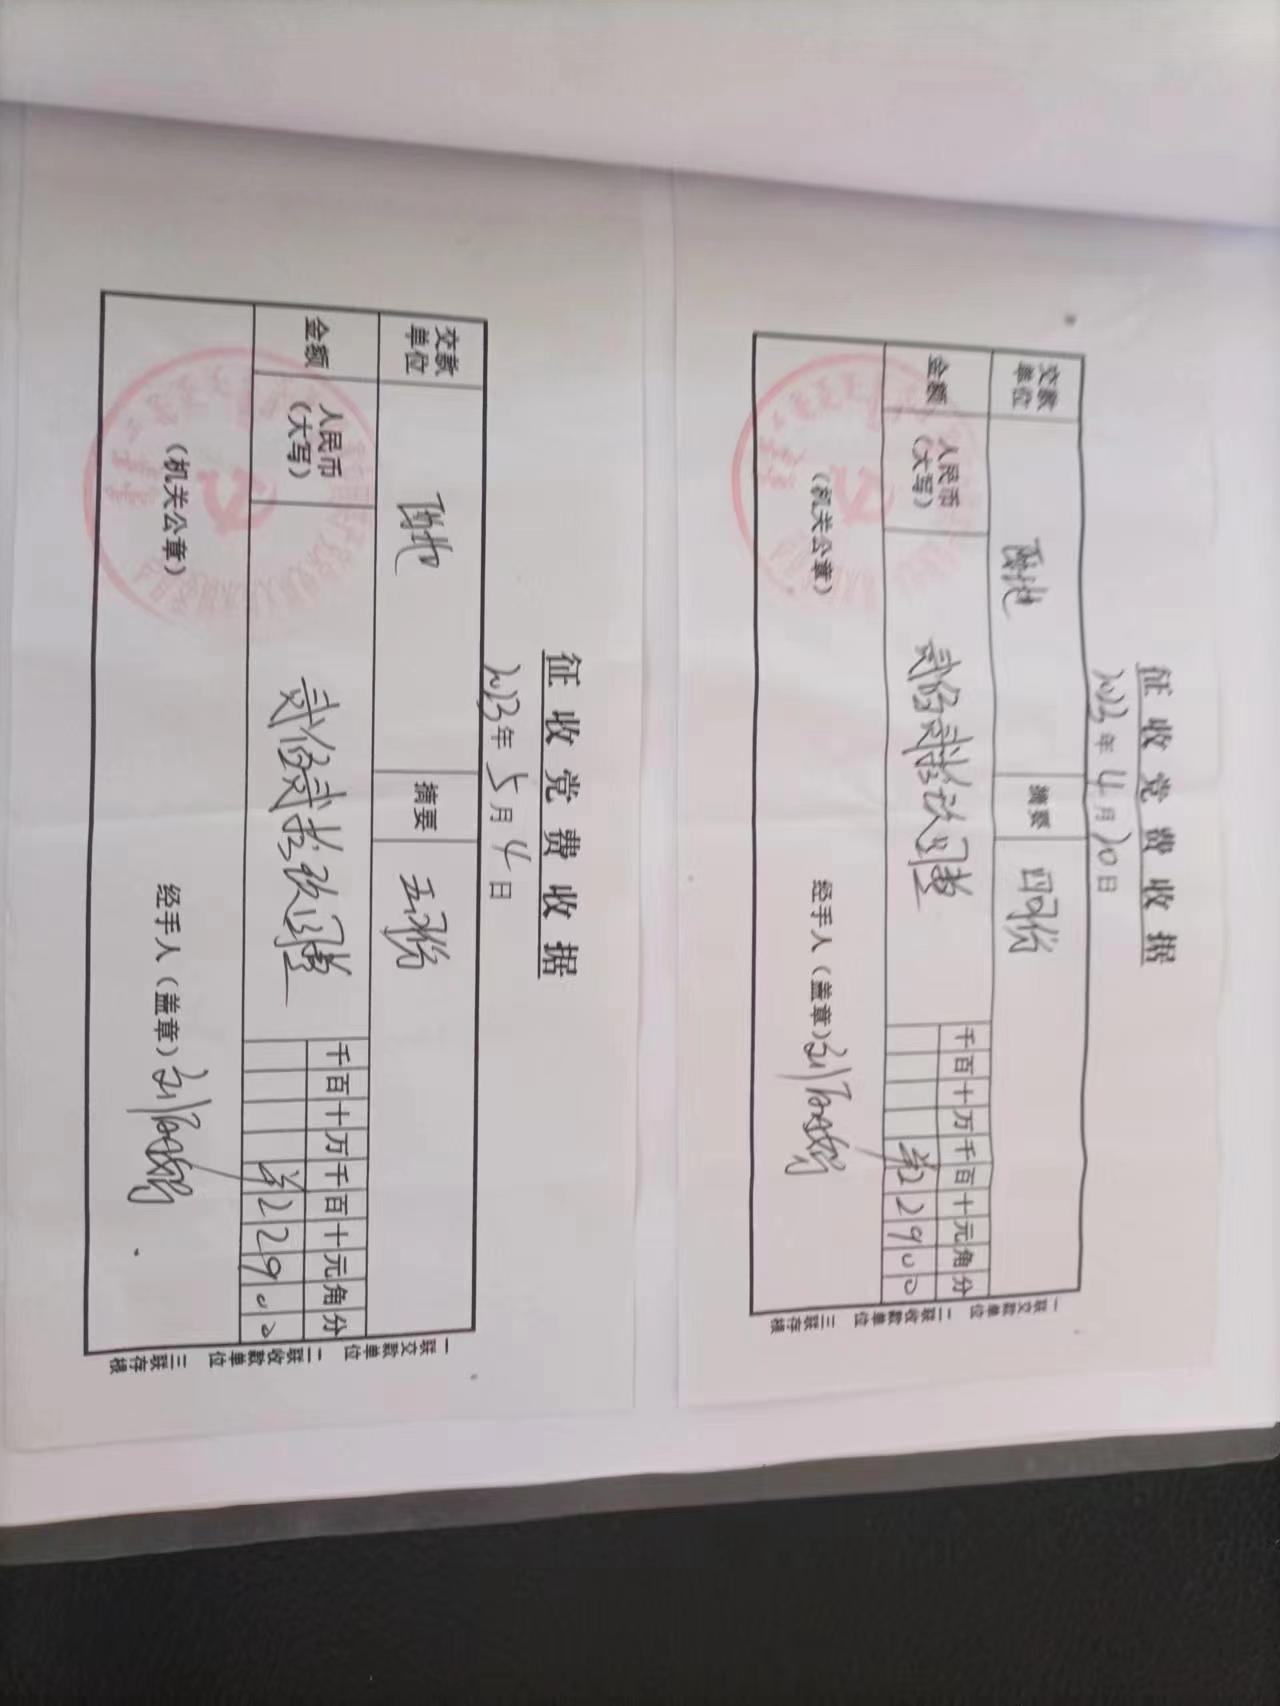 征收党费收据
2023年4月20日
交款单位
摘要
四月份
金额
人民币（大写）
贰佰贰拾玖圆整
千百十万千百十元角分
22900
（机关公章）
经手人（盖章）
一联交款单位 二联收款单位 三联存根
征收党费收据
2023年5月4日
交款单位
摘要
五月份
金额
人民币（大写）
贰佰贰拾玖圆整
千百十万千百十元角分
22900
（机关公章）
经手人（盖章）
一联交款单位 二联收款单位 三联存根